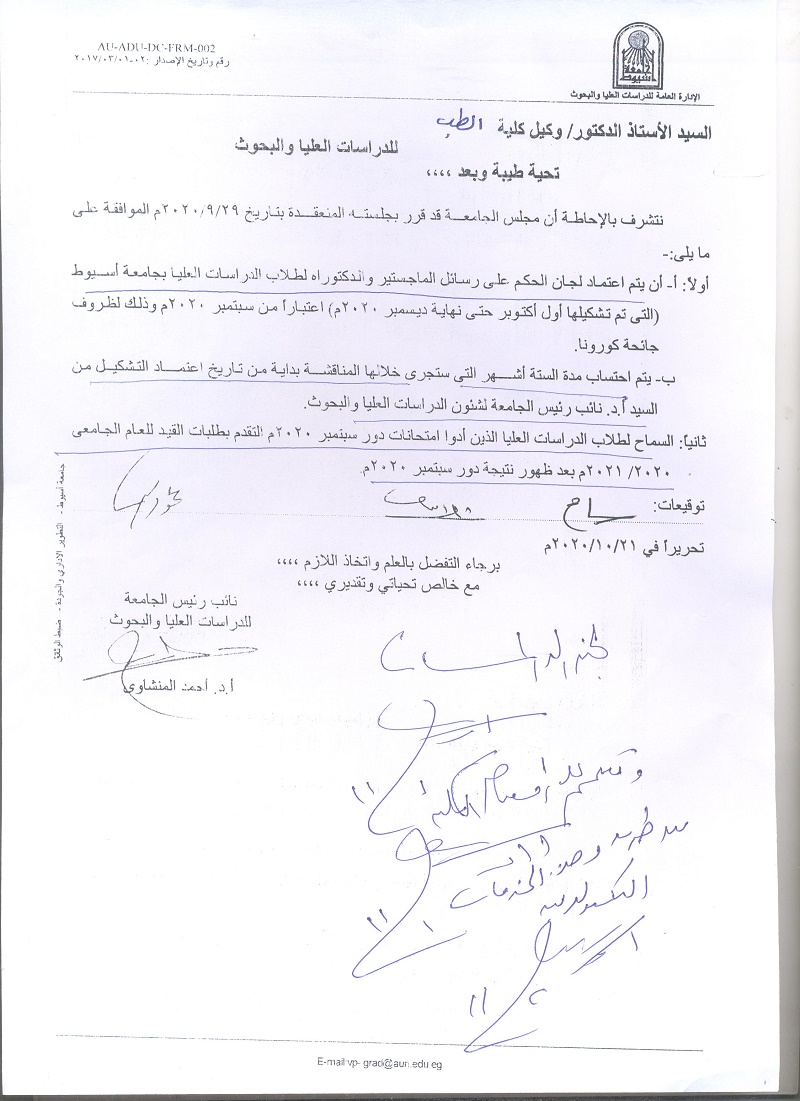 AU-ADU-DC-FRM-002
رقم وتاريخ الإصدار :٠٢-٢٠١٧/٠٣/٠١
جامعة أسيوط
الإدارة العامة للدراسات العليا والبحوث
السيد الأستاذ الدكتور/ وكيل كلية الطب
للدراسات العليا والبحوث
تحية طيبة وبعد ،،،،
نتشرف بالإحاطة أن مجلس الجامعة قد قرر بجلسته المنعقدة بتاريخ ٢٠٢٠/٩/٢٩م الموافقة على
ما يلى:-
أولاً: أ- أن يتم اعتماد لجان الحكم على رسائل الماجستير والدكتوراه لطلاب الدراسات العليا بجامعة أسيوط
(التى تم تشكيلها أول أكتوبر حتى نهاية ديسمبر ٢٠٢٠م) اعتباراً من سبتمبر ٢٠٢٠م وذلك لظروف
جائحة كورونا.
ب- يتم احتساب مدة الستة أشهر التى ستجرى خلالها المناقشة بداية من تاريخ اعتماد التشكيل من
السيد أ.د. نائب رئيس الجامعة لشئون الدراسات العليا والبحوث.
ثانياً: السماح لطلاب الدراسات العليا الذين أدوا امتحانات دور سبتمبر ٢٠٢٠م التقدم بطلبات القيد للعام الجامعى
٢٠٢٠/ ٢٠٢١م بعد ظهور نتيجة دور سبتمبر ٢٠٢٠م.
توقيعات:
تحريراً في ٢٠٢٠/١٠/٢١م
برجاء التفضل بالعلم واتخاذ اللازم ،،،،
مع خالص تحياتي وتقديري ،،،،
نائب رئيس الجامعة
للدراسات العليا والبحوث
أ.د. أحمد المنشاوى
جامعة أسيوط - التطوير الاداري والجودة - ضبط الوثائق
لجنة الدراسات
الخدمات
التكنولوجية
E-mail:vp- grad@aun.edu.eg